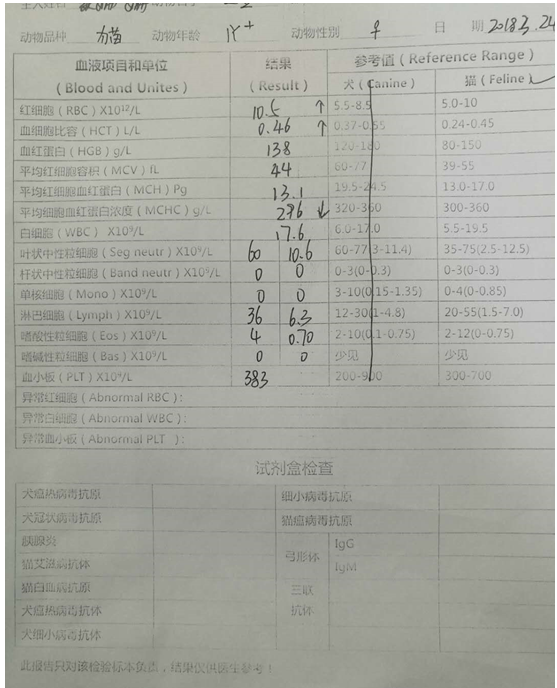 动物品种 动物年龄 1Y+ 动物性别 ♀ 日 期 2018.3.24
血液项目和单位 (Blood and Unites) 结果 (Result) 参考值 (Reference Range)
犬 (Canine) 猫 (Feline) ✓
红细胞 (RBC) X10¹²/L 10.5 ↑ 5.5-8.5 5.0-10
血细胞比容 (HCT) L/L 0.46 ↑ 0.37-0.55 0.24-0.45
血红蛋白 (HGB) g/L 138 120-180 80-150
平均红细胞容积 (MCV) fL 44 60-77 39-55
平均红细胞血红蛋白 (MCH) Pg 13.1 19.5-24.5 13.0-17.0
平均红细胞血红蛋白浓度 (MCHC) g/L 296 ↓ 320-360 300-360
白细胞 (WBC) X10⁹/L 17.6 6.0-17.0 5.5-19.5
叶状中性粒细胞 (Seg neutr) X10⁹/L 60 10.6 60-77(3-11.4) 35-75(2.5-12.5)
杆状中性粒细胞 (Band neutr) X10⁹/L 0 0 0-3(0-0.3) 0-3(0-0.3)
单核细胞 (Mono) X10⁹/L 0 0 3-10(0.15-1.35) 0-4(0-0.85)
淋巴细胞 (Lymph) X10⁹/L 36 6.3 12-30(1-4.8) 20-55(1.5-7.0)
嗜酸性粒细胞 (Eos) X10⁹/L 4 0.70 2-10(0.1-0.75) 2-12(0-0.75)
嗜碱性粒细胞 (Bas) X10⁹/L 0 0 少见 少见
血小板 (PLT) X10⁹/L 383 200-900 300-700
异常红细胞 (Abnormal RBC):
异常白细胞 (Abnormal WBC):
异常血小板 (Abnormal PLT):
试剂盒检查
犬瘟热病毒抗原 细小病毒抗原
犬冠状病毒抗原 猫瘟病毒抗原
胰腺炎 弓形体 IgG
猫艾滋病抗体 IgM
猫白血病抗原 三联
犬瘟热病毒抗体 抗体
犬细小病毒抗体
此报告只对该检验标本负责，结果仅供医生参考！